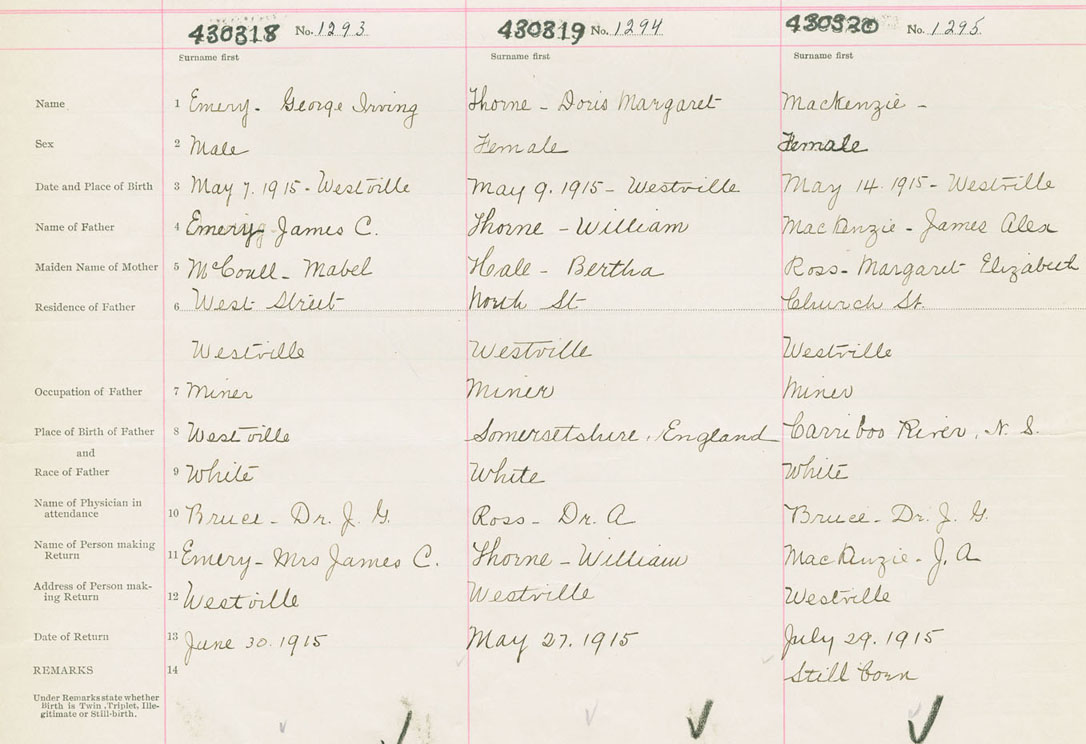 430318 No. 1293 430319 No. 1294 430320 No. 1295
Surname first Surname first Surname first
Name 1 Emery - George Irving Thorne - Doris Margaret MacKenzie -
Sex 2 Male Female Female
Date and Place of Birth 3 May 7. 1915 - Westville May 9. 1915 - Westville May 14. 1915 - Westville
Name of Father 4 Emery James C. Thorne - William MacKenzie - James Alex
Maiden Name of Mother 5 McCoull - Mabel Hale - Bertha Ross - Margaret Elizabeth
Residence of Father 6 West Street North St Church St.
Westville Westville Westville
Occupation of Father 7 Miner Miner Miner
Place of Birth of Father 8 Westville Somersetshire, England Carriboo River, N. S.
and
Race of Father 9 White White White
Name of Physician in
attendance 10 Bruce - Dr. J. G. Ross - Dr. A Bruce - Dr. J. G.
Name of Person making
Return 11 Emery - Mrs James C. Thorne - William MacKenzie - J. A
Address of Person mak-
ing Return 12 Westville Westville Westville
Date of Return 13 June 30. 1915 May 27. 1915 July 29. 1915
REMARKS 14 Still born
Under Remarks state whether
Birth is Twin, Triplet, Ille-
gitimate or Still-birth.